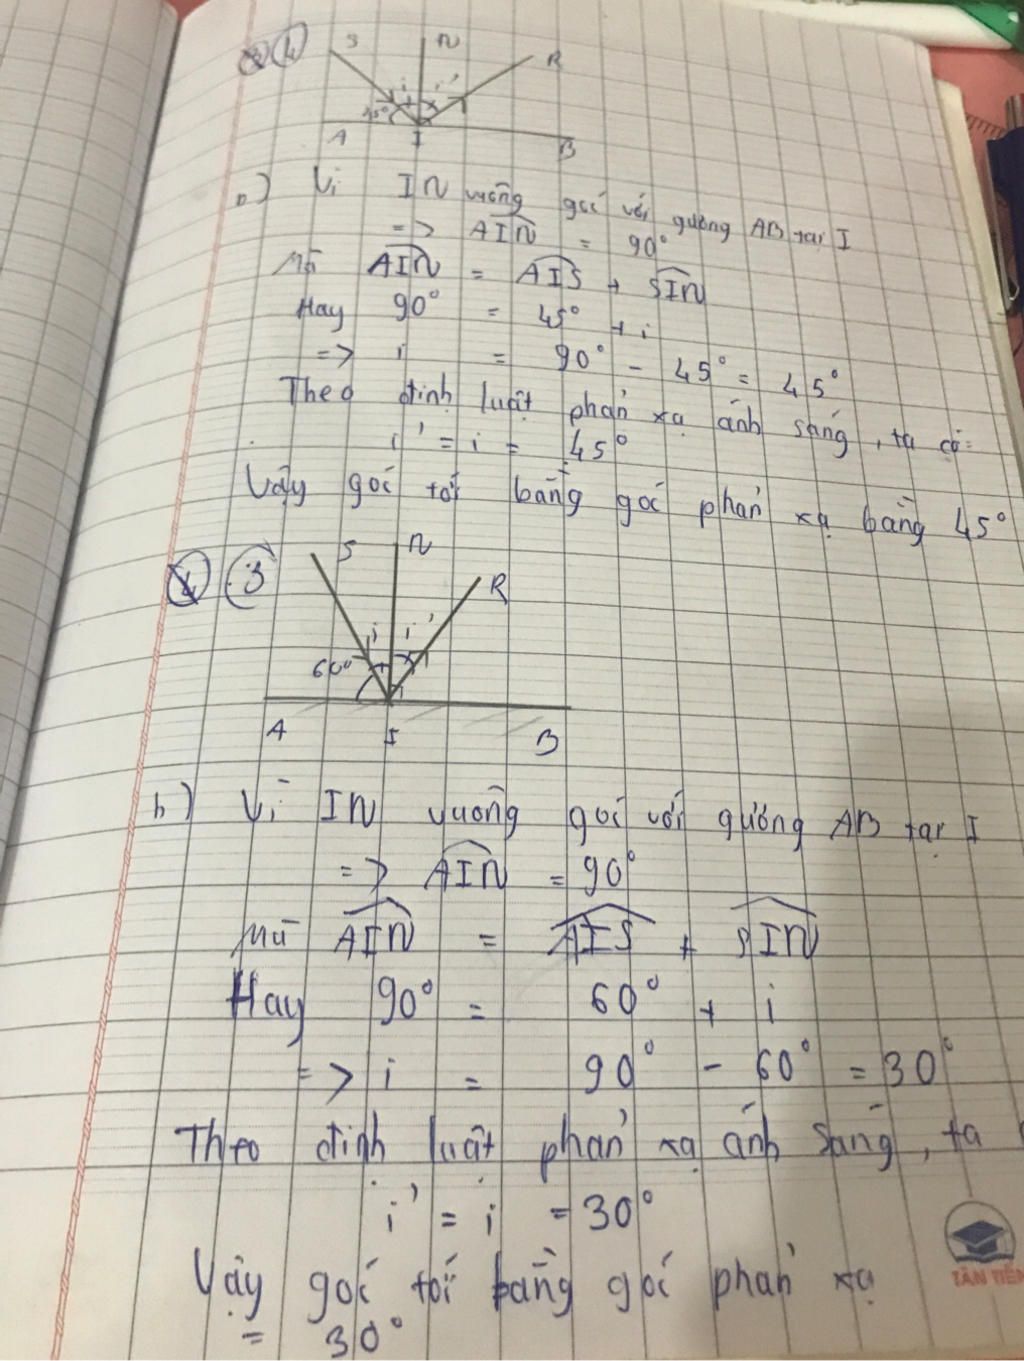 4
S N R
i i'
45°
A I B
a) Vì IN vuông góc với gương AB tại I
=> AIN = 90°
Mà AIN = AIS + SIN
Hay 90° = 45° + i
=> i = 90° - 45° = 45°
Theo định luật phản xạ ánh sáng, ta có:
i' = i = 45°
Vậy góc tới bằng góc phản xạ bằng 45°
3
S N R
i i'
60°
A I B
b) Vì IN vuông góc với gương AB tại I
=> AIN = 90°
Mà AIN = AIS + SIN
Hay 90° = 60° + i
=> i = 90° - 60° = 30°
Theo định luật phản xạ ánh sáng, ta
i' = i = 30°
Vậy góc tới bằng góc phản xạ
= 30°
TÂN TIẾN